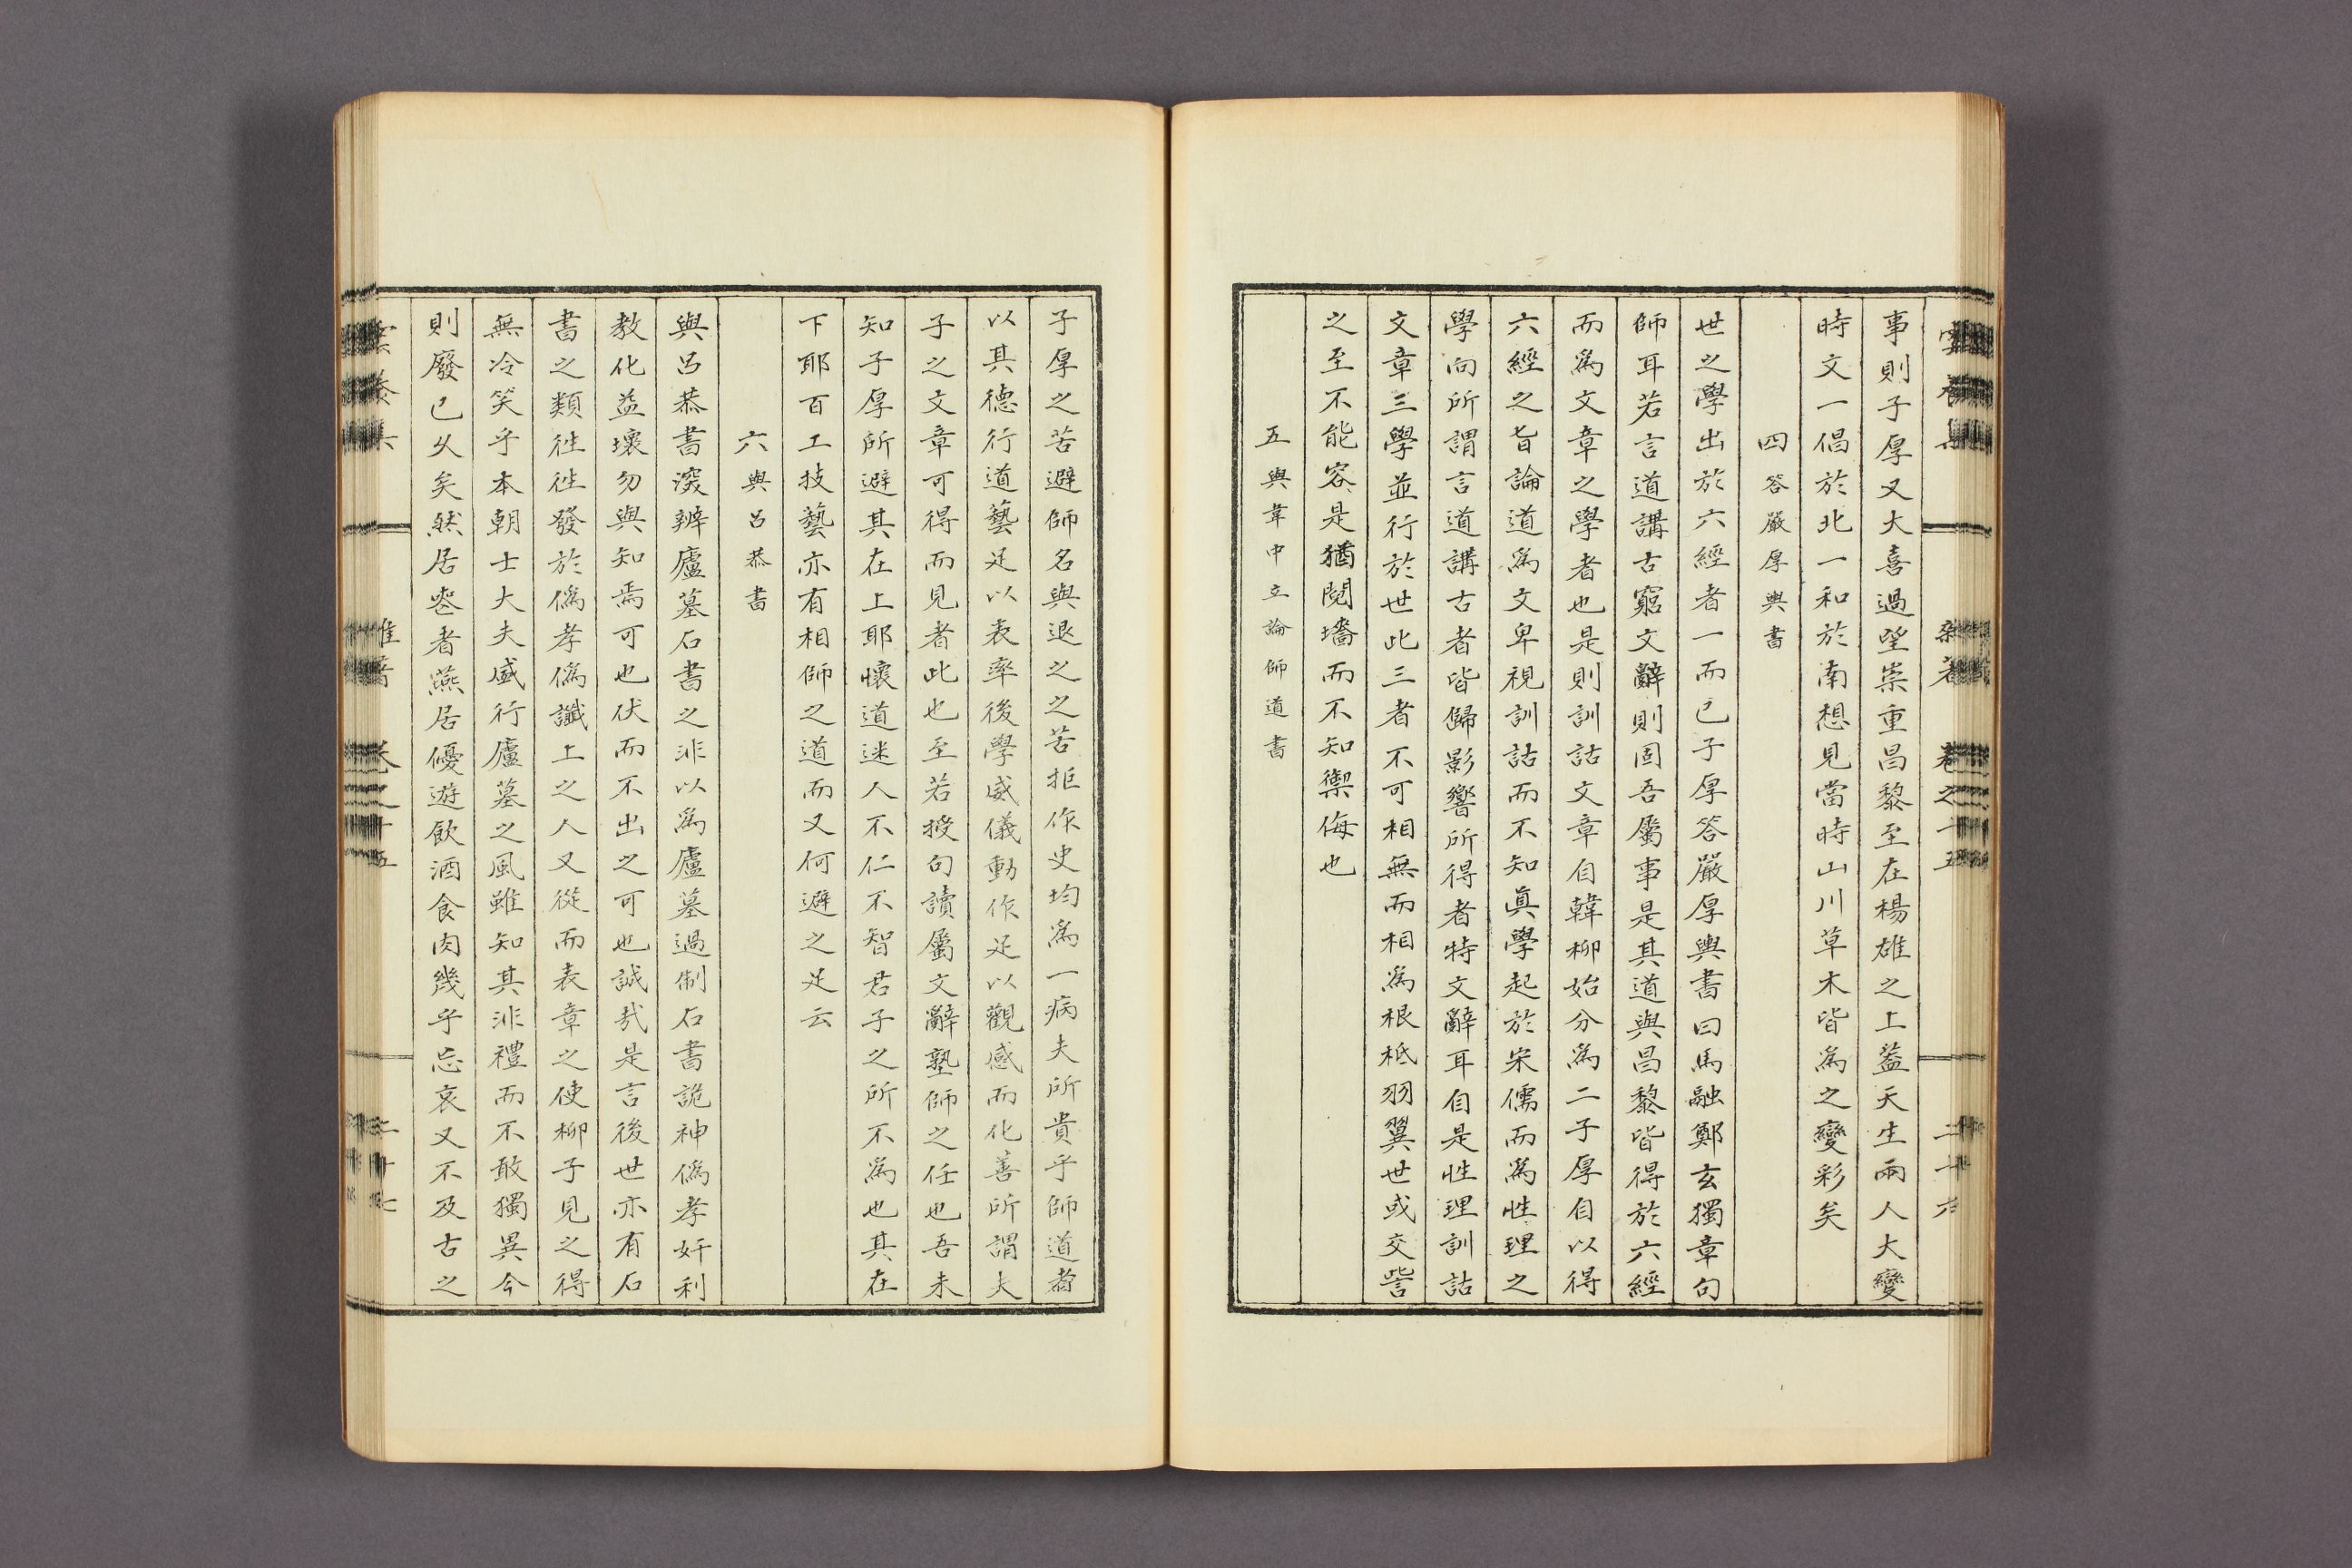 事則子厚又大喜過望崇重昌黎至在楊雄之上蓋天生兩人大變
時文一倡於北一和於南想見當時山川草木皆爲之變彩矣
四答嚴厚輿書
世之學出於六經者一而已子厚答嚴厚輿書曰馬融鄭玄獨章句
師耳若言道講古窮文辭則固吾屬事是其道與昌黎皆得於六經
而爲文章之學者也是則訓詁文章自韓柳始分爲二子厚自以得
六經之旨論道爲文卑視訓詁而不知眞學起於宋儒而爲性理之
學向所謂言道講古者皆歸影響所得者特文辭耳自是性理訓詁
文章三學並行於世此三者不可相無而相爲根柢羽翼世或交訾
之至不能容是猶鬩墻而不知禦侮也
五與韋中立論師道書
子厚之苦避師名與退之之苦拒作史均爲一病夫所貴乎師道者
以其德行道藝足以表率後學威儀動作足以觀感而化善所謂夫
子之文章可得而見者此也至若授句讀屬文辭塾師之任也吾未
知子厚所避其在上耶懷道迷人不仁不智君子之所不爲也其在
下耶百工技藝亦有相師之道而又何避之足云
六與呂恭書
與呂恭書深辨廬墓石書之非以爲廬墓過制石書詭神僞孝奸利
教化益壞勿與知焉可也伏而不出之可也誠哉是言後世亦有石
書之類徃徃發於僞孝僞讖上之人又從而表章之使柳子見之得
無冷笑乎本朝士大夫盛行廬墓之風雖知其非禮而不敢獨異今
則廢已久矣然居喪者燕居優遊飮酒食肉幾乎忘哀又不及古之
雜著 卷之十五 二十七